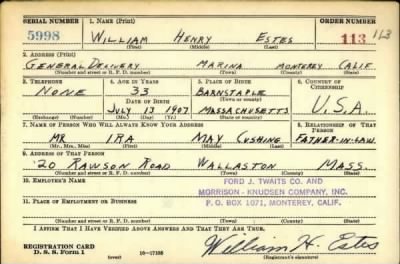 SERIAL NUMBER 1. NAME (Print) ORDER NUMBER
5998 WILLIAM HENRY ESTES 113 113
(First) (Middle) (Last)
2. ADDRESS (Print)
GENERAL DELIVERY MARINA MONTEREY CALIF.
(Number and street or R. F. D. number) (Town) (County) (State)
3. TELEPHONE 4. AGE IN YEARS 5. PLACE OF BIRTH 6. COUNTRY OF CITIZENSHIP
NONE 33 BARNSTAPLE
DATE OF BIRTH (Town or county)
JULY 13 1907 MASSACHUSETTS U.S.A.
(Exchange) (Number) (Mo.) (Day) (Yr.) (State or country)
7. NAME OF PERSON WHO WILL ALWAYS KNOW YOUR ADDRESS 8. RELATIONSHIP OF THAT PERSON
MR IRA MAY CUSHING FATHER-IN-LAW
(Mr., Mrs., Miss) (First) (Middle) (Last)
9. ADDRESS OF THAT PERSON
20 RAWSON ROAD WALLASTON MASS.
(Number and street or R. F. D. number) (Town) (County) (State)
10. EMPLOYER'S NAME FORD J. TWAITS CO. AND
MORRISON - KNUDSEN COMPANY, INC.
11. PLACE OF EMPLOYMENT OR BUSINESS P. O. BOX 1071, MONTEREY, CALIF.
(Number and street or R. F. D. number) (Town) (County) (State)
I AFFIRM THAT I HAVE VERIFIED ABOVE ANSWERS AND THAT THEY ARE TRUE.
REGISTRATION CARD
D. S. S. Form 1 16-17105 William H. Estes
(over) (Registrant's signature)